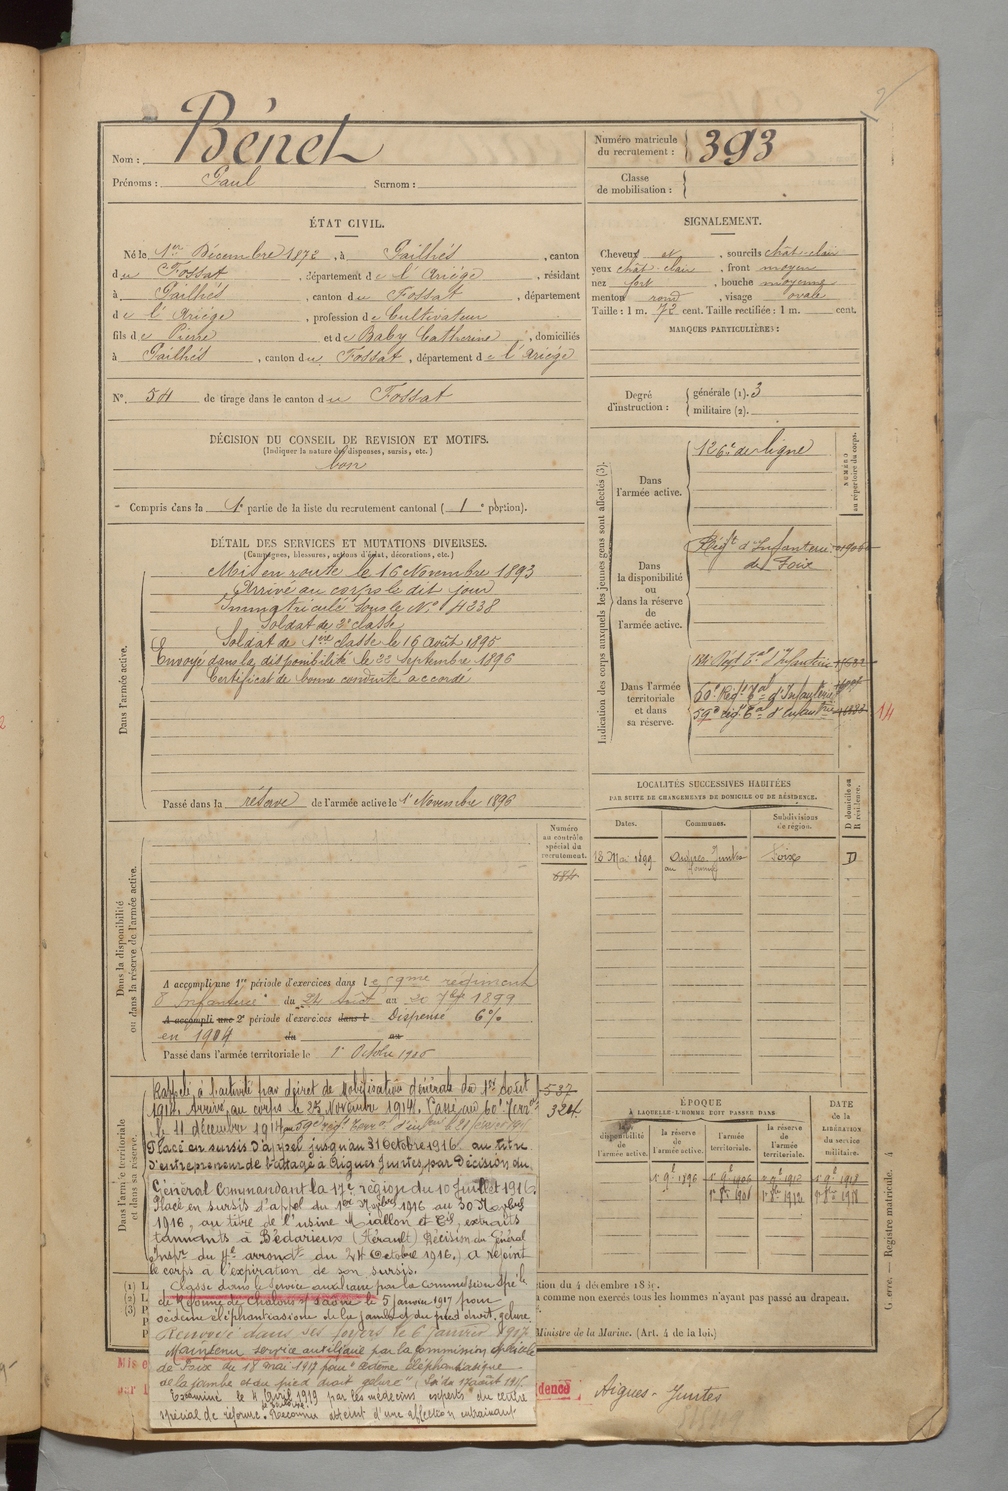 Nom : Bénet
Prénoms : Paul Surnom :
Numéro matricule du recrutement : 393
Classe de mobilisation :
ÉTAT CIVIL.
Né le 1er Décembre 1872, à Pailhés, canton
du Fossat, département de l'Ariége, résidant
à Pailhés, canton du Fossat, département
de l'Ariége, profession de Cultivateur
fils de Pierre et de Baby Catherine, domiciliés
à Pailhés, canton du Fossat, département de l'Ariége
N° 54 de tirage dans le canton du Fossat
SIGNALEMENT.
Cheveux et, sourcils chât-clair
yeux chât-clair, front moyen
nez fort, bouche moyenne
menton rond, visage ovale
Taille : 1 m. 72 cent. Taille rectifiée : 1 m. cent.
MARQUES PARTICULIÈRES :
Degré d'instruction : générale (1). 3
militaire (2).
DÉCISION DU CONSEIL DE REVISION ET MOTIFS.
(Indiquer la nature des dispenses, sursis, etc.)
bon
Compris dans la 1e partie de la liste du recrutement cantonal ( 1e portion).
DÉTAIL DES SERVICES ET MUTATIONS DIVERSES.
(Campagnes, blessures, actions d'éclat, décorations, etc.)
Dans l'armée active.
Mis en route le 16 Novembre 1893
Arrivé au corps le dit jour
Immatriculé sous le N° 4238
Soldat de 2e classe
Soldat de 1ere classe le 16 Août 1895
Envoyé dans la disponibilité le 22 septembre 1896
Certificat de bonne conduite accordé
Passé dans la réserve de l'armée active le 1er Novembre 1896
Indication des corps auxquels les jeunes gens sont affectés (3).
NUMÉRO au répertoire du corps.
Dans l'armée active.
126e de ligne
Dans la disponibilité ou dans la réserve de l'armée active.
Régt d'Infanterie
de Foix
Dans l'armée territoriale et dans sa réserve.
60e Régt Tal d'Infanterie
59e rég. Tal d'Infantrie
14
LOCALITÉS SUCCESSIVES HABITÉES
PAR SUITE DE CHANGEMENTS DE DOMICILE OU DE RÉSIDENCE.
D domicile ou R résidence.
Dates. Communes. Subdivisions de région.
18 Mai 1899 Aigues-Juntes Foix D
Dans la disponibilité ou dans la réserve de l'armée active.
Numéro au contrôle spécial du recrutement.
684
A accompli une 1re période d'exercices dans le 59me régiment
d'Infanterie du 24 Août au 20 7bre 1899
A accompli une 2e période d'exercices dans l Dispensé 6%
en 1904 du au
Passé dans l'armée territoriale le 1er Octobre 1906
Dans l'armée territoriale et dans sa réserve.
537
324
Rappelé à l'activité par décret de Mobilisation générale du 1er Août
1914. Arrivé au corps le 25 Novembre 1914. Passé au 60e Terral
le 11 décembre 1914
Placé en sursis d'appel jusqu'au 31 Octobre 1916 au titre
d'entrepreneur de battage à Aigues Juntes, par Décision du
Général Commandant la 17e région du 10 Juillet 1916.
Placé en sursis d'appel du 1er Novbre 1916 au 30 Novbre
1916, au titre de l'usine Miallon et Cie, extraits
tannants à Bédarieux (Hérault) Décision du Général
Inspr du 4e arrondt du 24 Octobre 1916. A rejoint
le corps à l'expiration de son sursis.
Classé dans le service auxiliaire par la Commission Spéle
de Réforme de Chalons s/ Saône le 5 janvier 1917 pour
œdème éléphantiasique de la jambe et du pied droit, gelure
Renvoyé dans ses foyers le 6 janvier 1917
Maintenu service auxiliaire par la commission spéciale
de Foix du 18 mai 1917 pour "œdème éléphantiasique
de la jambe et du pied droit gelure"
Examiné le 4 Avril 1919 par les médecins experts du centre
spécial de réforme. Reconnu atteint d'une affection entraînant
ÉPOQUE
À LAQUELLE L'HOMME DOIT PASSER DANS
la disponibilité de l'armée active. la réserve de l'armée active. l'armée territoriale. la réserve de l'armée territoriale.
DATE de la LIBÉRATION du service militaire.
comme non exercés tous les hommes n'ayant pas passé au drapeau.
Ministre de la Marine. (Art. 4 de la loi.)
Aigues-Juntes
Registre matricule. 4